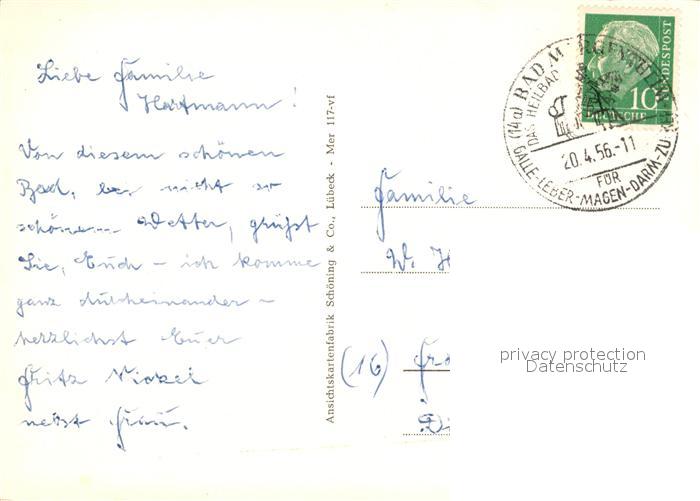 Liebe Familie
Hartmann!
Von diesem schönen
Bad, bei nicht so
schönem Wetter, grüßt
Sie, Euch – ich komme
ganz durcheinander –
herzlichst Euer
Fritz
nebst Frau.
Ansichtskartenfabrik Schöning & Co., Lübeck - Mer 117-vf
DEUTSCHE BUNDESPOST
10
(14a) BAD MERGENTHEIM
DAS HEILBAD
20.4.56.-11
FÜR
GALLE-LEBER-MAGEN-DARM-ZU
Familie
W. H
(16) Fra
privacy protection
Datenschutz